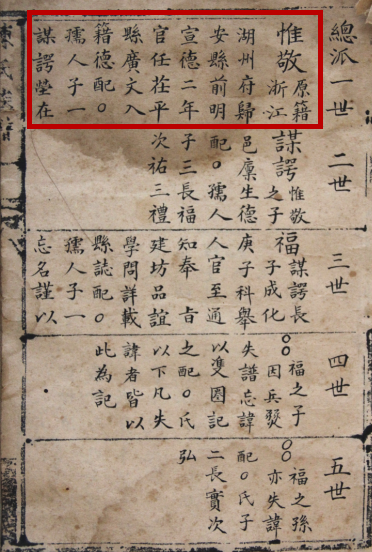 總派一世
惟敬 原籍浙江
湖州府歸
安縣前明
宣德二年
官任茌平
縣廣文入
籍德配○
孺人子一
謀諤塋在
二世
謀諤 惟敬之子
邑廩生德
配○孺人
子三長福
次祐三禮
三世
福 謀諤長子成化
庚子科舉
人官至通
知奉 旨
建坊品誼
學問詳載
縣誌配○
孺人子一
忘名謹以
四世
○○ 福之子因兵燹
失譜忘諱
以雙圈記
之配○氏
以下凡失
諱者皆以
此為記
五世
○○ 福之孫亦失諱
配○氏子
二長實次
弘